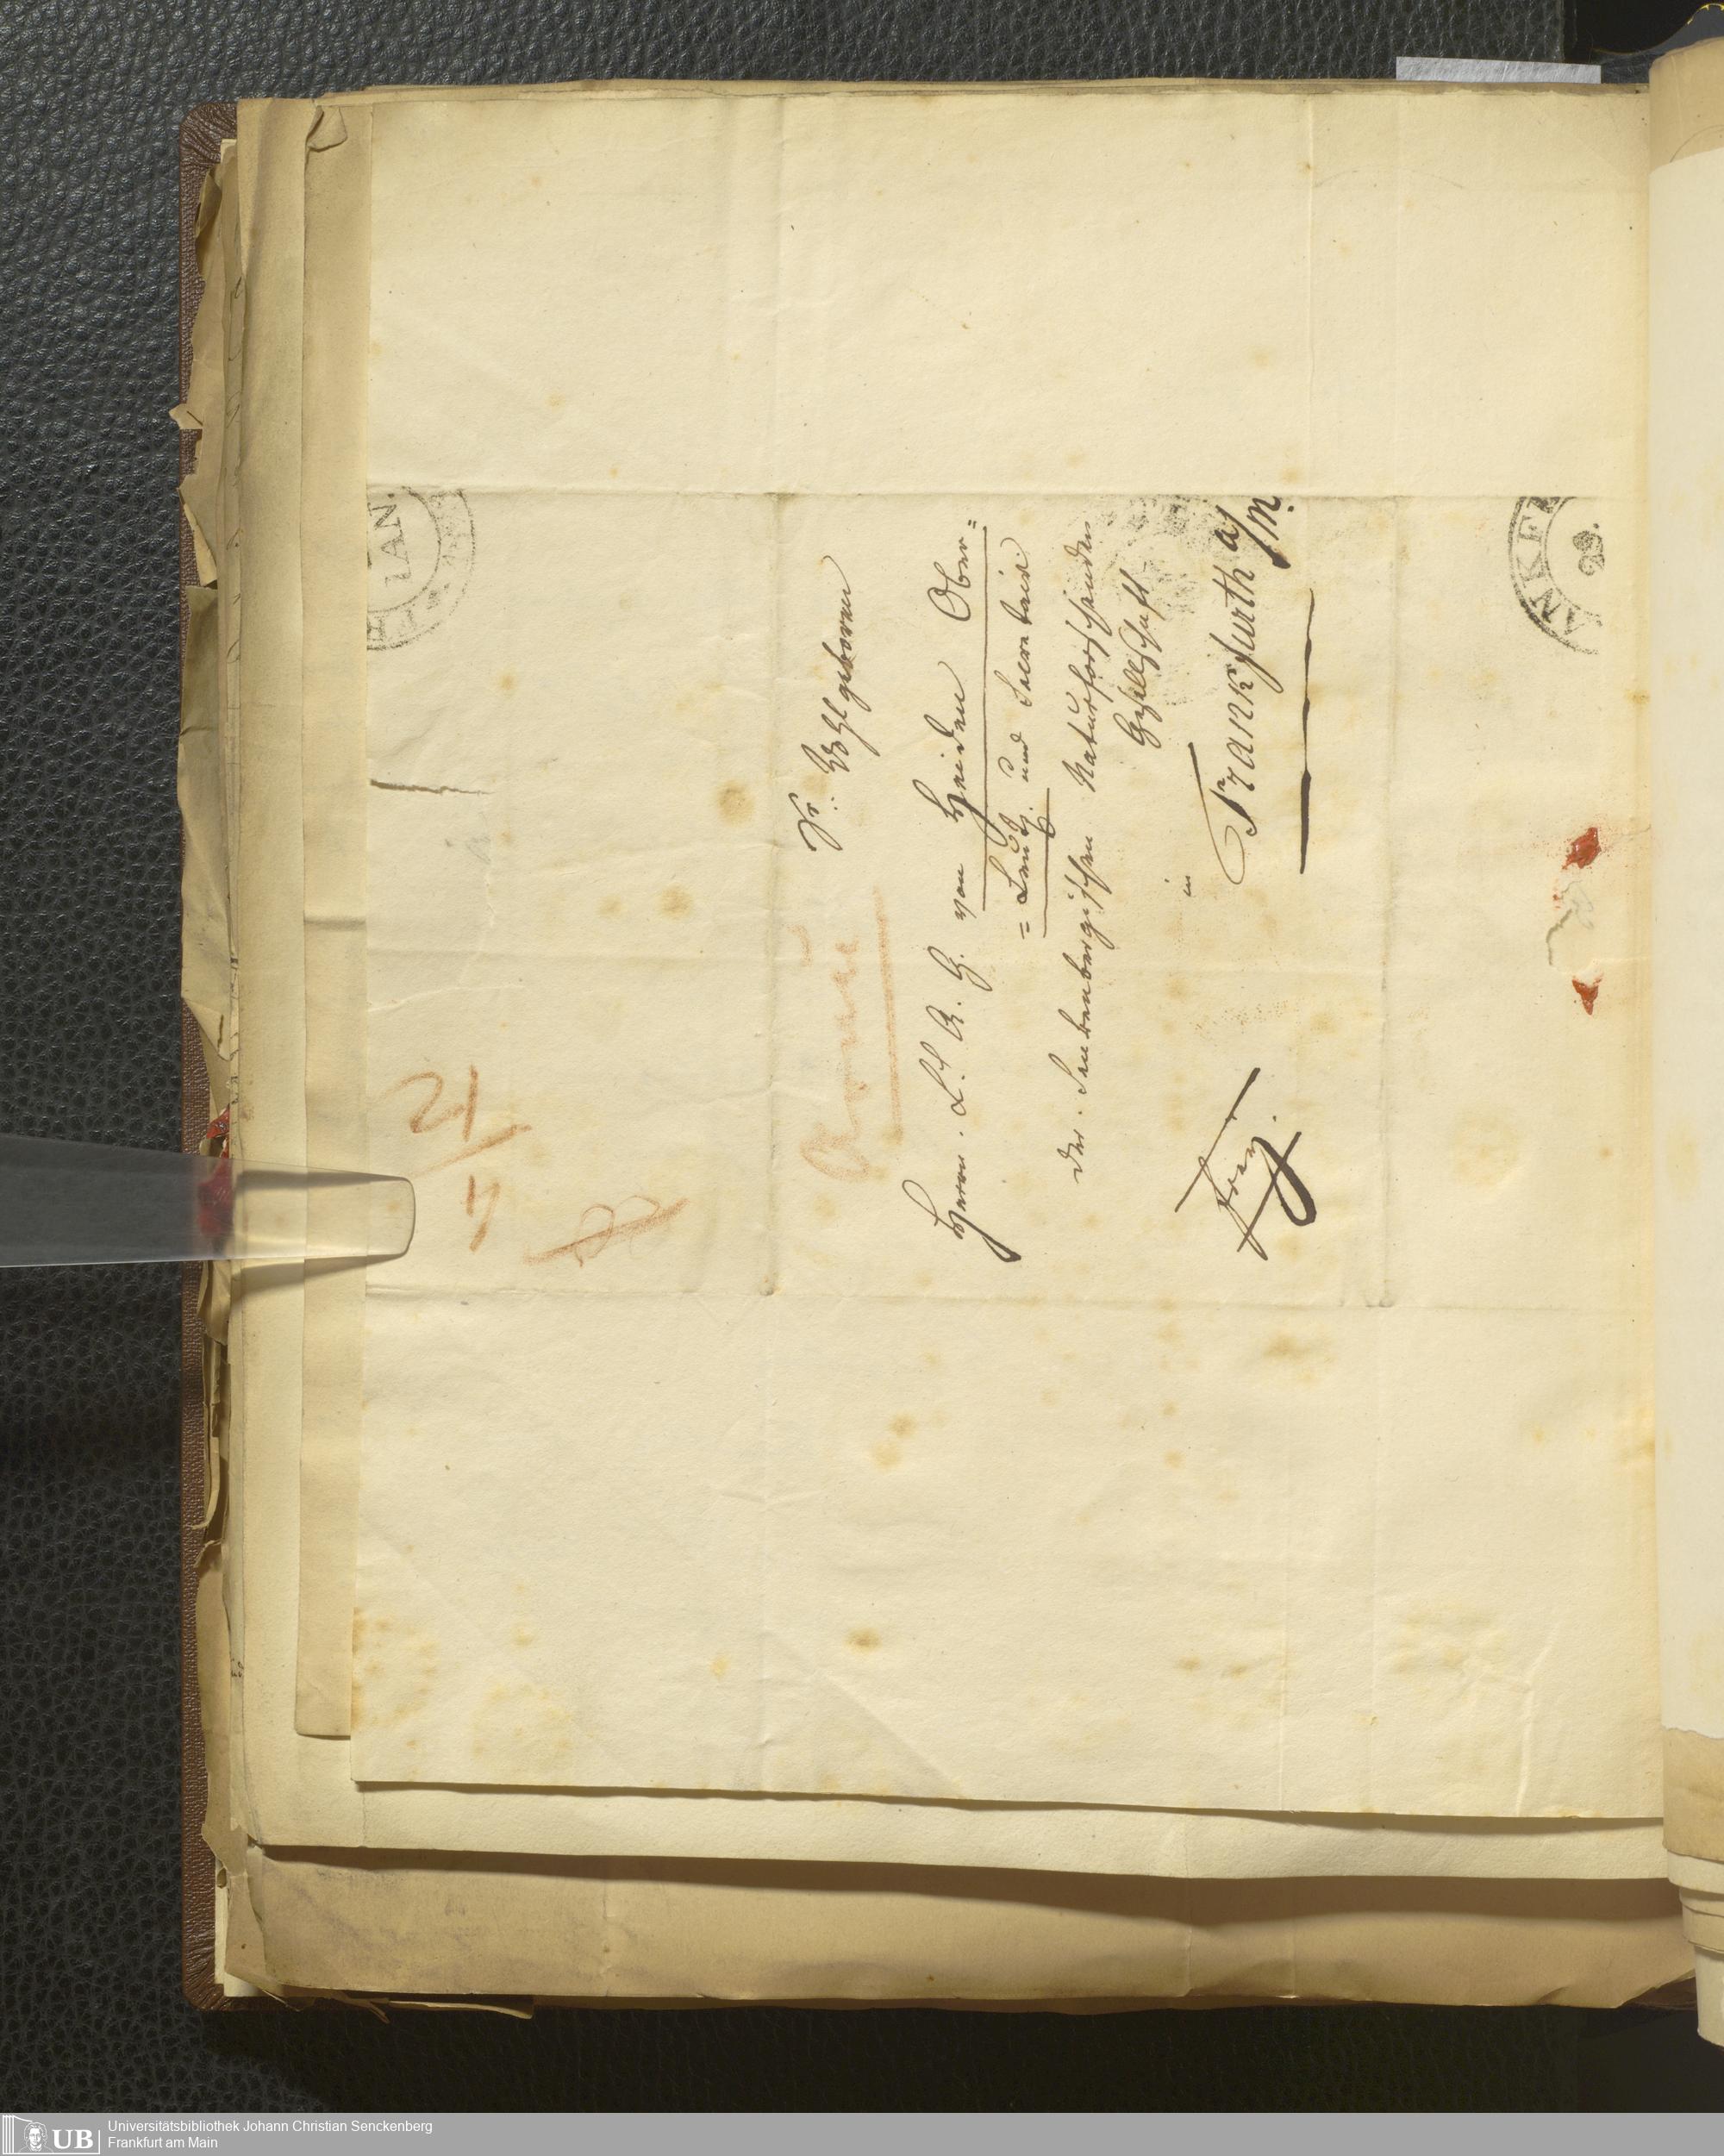 Sr. Wohlgeboren
Herrn. L. C. H. G. von Heiden Ober-
= Leut. und Secretair
der. Senkenbergischen Naturforschenden
Gesellschaft
in
Frankfurth a/M.
frey.
21
4
JAN.
ANKF
98.
UB
Universitätsbibliothek Johann Christian Senckenberg
Frankfurt am Main